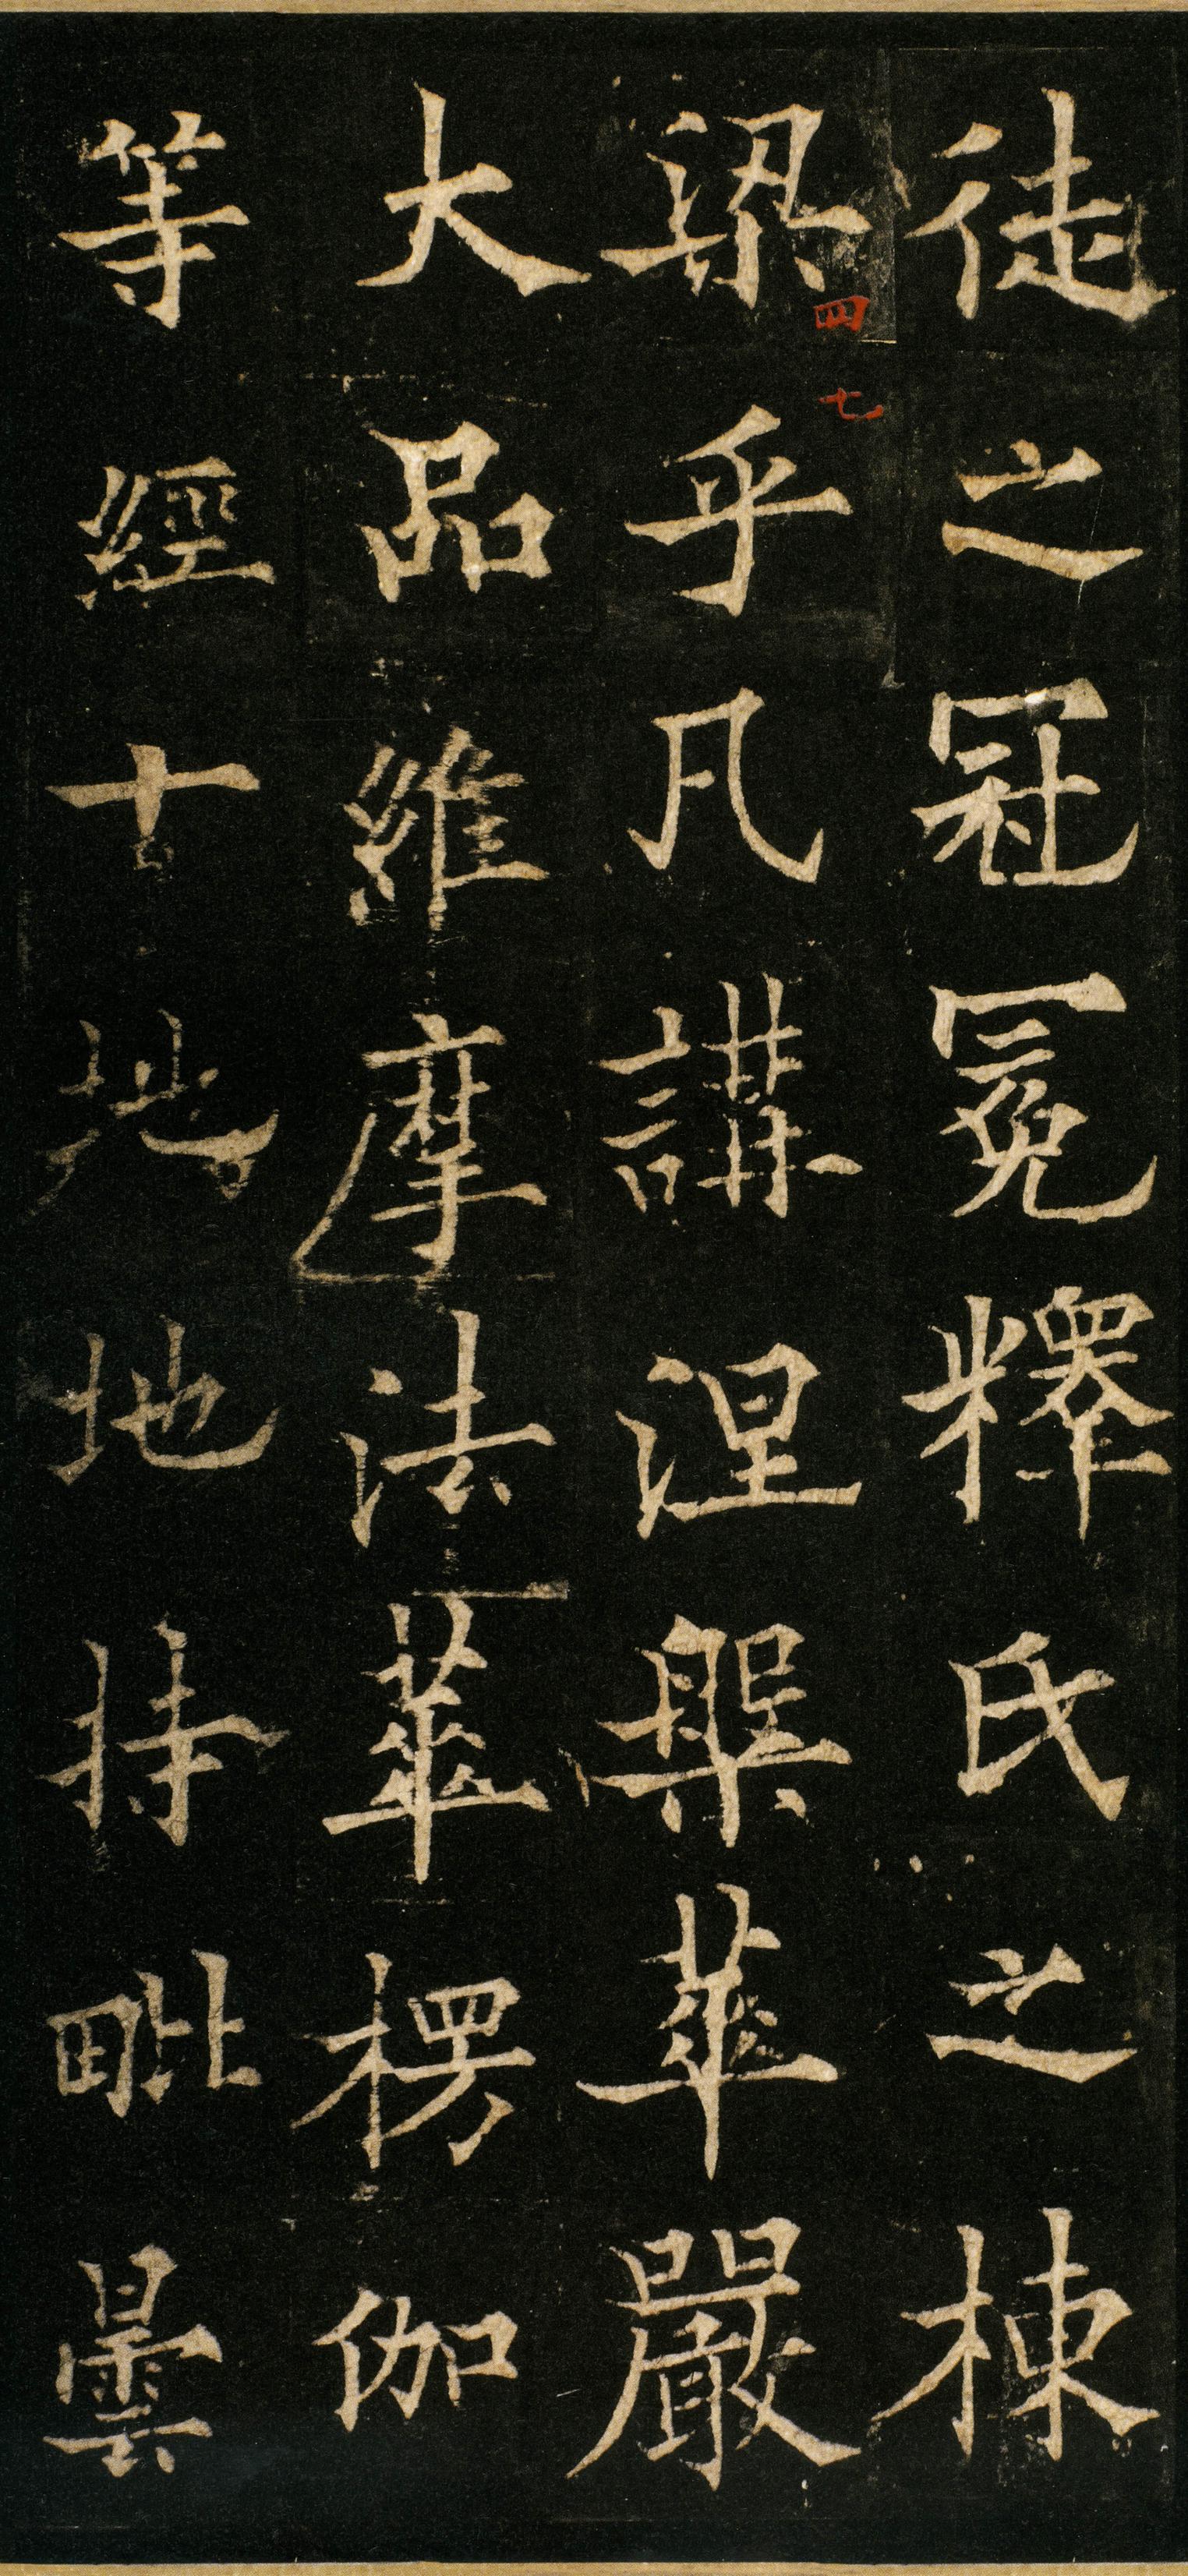 徒之冠冕釋氏之棟
四七
梁乎凡講涅槃華嚴
大品維摩法華楞伽
等經十地地持毗曇